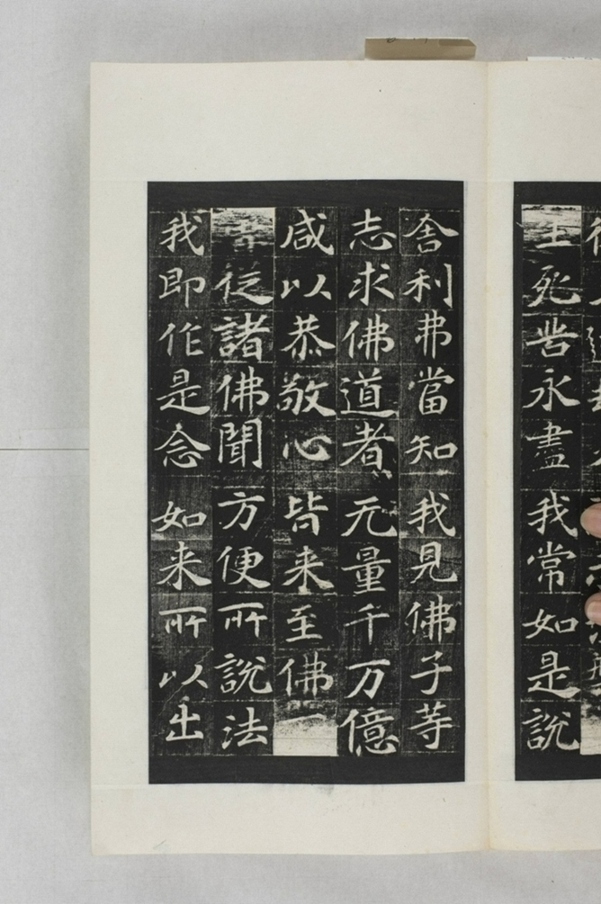 生死苦永盡 我常如是說
舍利弗當知 我見佛子等
志求佛道者 无量千万億
咸以恭敬心 皆来至佛
從諸佛聞 方便所說法
我即作是念 如来所以出